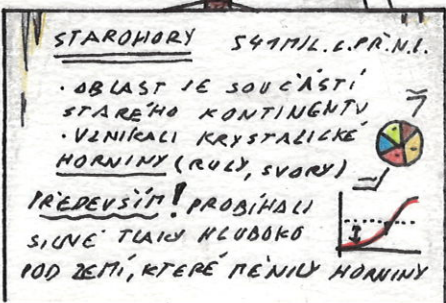 STAROHORY 541 MIL. L. PŘ. N. L.
· OBLAST JE SOUČÁSTÍ
STARÉHO KONTINENTU
· VZNIKALI KRYSTALICKÉ
HORNINY (RULY, SVORY)
PŘEDEVŠÍM! PROBÍHALI
SILNÉ TLAKY HLUBOKO
POD ZEMÍ, KTERÉ MĚNILY HORNINY